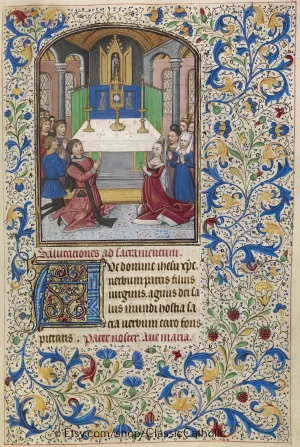 Salutaciones ad sacramentum.
Ve domine ihesu xpe.
verbum patris filius
virginis, agnus dei sa
lus mundi hostia sa
cra verbum caro fons
pietatis. Pater noster. Ave maria.
©Etsy.com/shop/ClassicCatholic